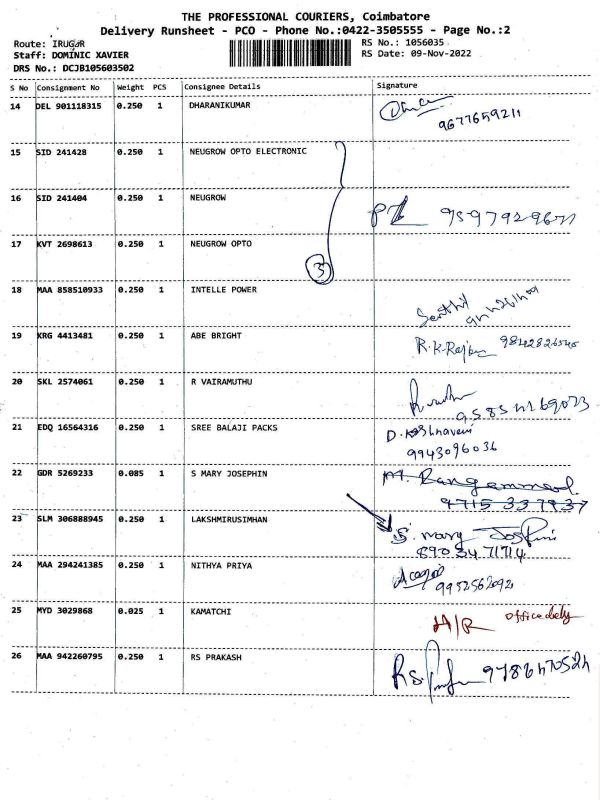 THE PROFESSIONAL COURIERS, Coimbatore
Delivery Runsheet - PCO - Phone No.:0422-3505555 - Page No.:2
Route: IRUGUR
RS No.: 1056035
Staff: DOMINIC XAVIER
RS Date: 09-Nov-2022
DRS No.: DCJB105603502
S No Consignment No Weight PCS Consignee Details Signature
14 DEL 901118315 0.250 1 DHARANIKUMAR
9677659211
15 SID 241428 0.250 1 NEUGROW OPTO ELECTRONIC
16 SID 241404 0.250 1 NEUGROW
17 KVT 2698613 0.250 1 NEUGROW OPTO
3
18 MAA 858510933 0.250 1 INTELLE POWER
Senthil
19 KRG 4413481 0.250 1 ABE BRIGHT
R.K.
20 SKL 2574061 0.250 1 R VAIRAMUTHU
21 EDQ 16564316 0.250 1 SREE BALAJI PACKS
9943096036
22 GDR 5269233 0.085 1 S MARY JOSEPHIN
M. Rangammal
9715 337937
23 SLM 306888945 0.250 1 LAKSHMIRUSIMHAN
S. mary
8903471714
24 MAA 294241385 0.250 1 NITHYA PRIYA
25 MYD 3029868 0.025 1 KAMATCHI
A/R office
26 MAA 942260795 0.250 1 RS PRAKASH
RS